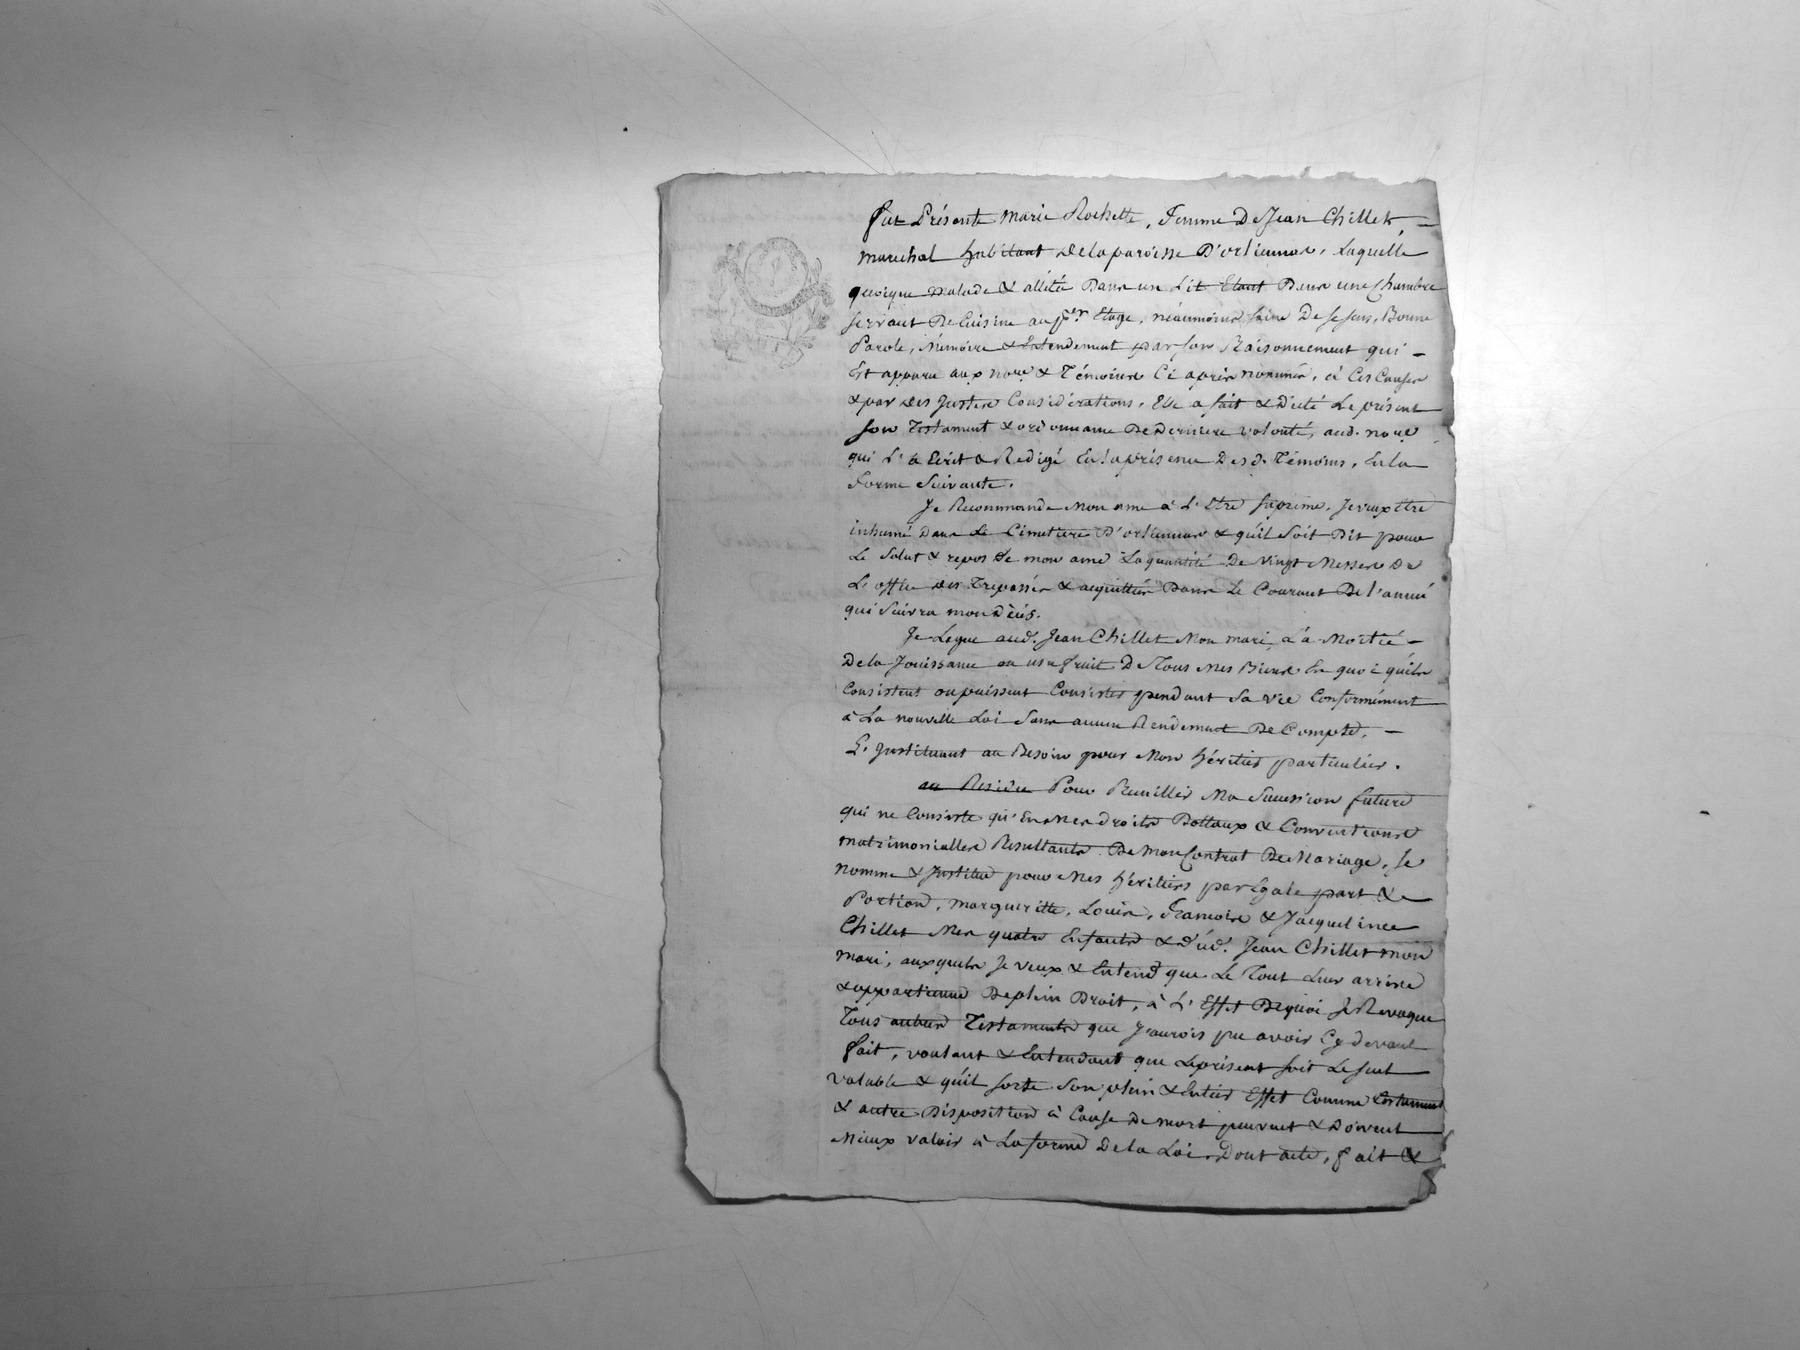 fut Présente Marie Rochette, Femme De Jean Chillet,
maréchal habitant dela paroisse D'orliennas, Laquelle
quoique malade & allitée Dans un Lit Etant Dans une Chambre
servant De Cuisine au per. Etage, néaumoins saine De ses sens, Bonne
Parole, Mémoire & Entendement par son Raisonnement qui
Est apparu aux nore & Témoins Ci après nommés, à Ces Causes
& par des Justes Considérations, Elle a fait & dicté Le présent
son Testament & ordonnance De Derniere volonté, aud. nore
qui L'a Ecrit & Redigé En la présence Des d. Témoins, En la
forme Suivante.
Je Recommande Mon ame à L'Etre Suprême, Je veux Etre
inhumé dans Le Cimetiere D'orliennas & qu'il soit Dit pour
Le salut & repos de mon ame La quantité De Vingt Messes De
L'office des Trepassés & acquittées Dans Le Courant De l'année
qui suivra mon Décés.
Je Legue aud. Jean Chillet Mon mari, la Moitié
De la Jouissance ou usufruit De Tous Mes Biens En quoi qu'ils
Consistent ou puissent Consister pendant sa vie Conformément
à La nouvelle Loi sans aucun Rendement De Compte,
L'Instituant au Besoin pour Mon héritier particulier.
au Residu Pour Recueillir Ma Succession future
qui ne Consiste qu'En Mes droits Dottaux & Conventions
matrimonialles Resultants De Mon Contrat De Mariage, Je
nomme & Institue pour Mes héritiers par Egale part &
Portion, Margueritte, Louis, Francoise & Jacqueline
Chillet Mes quatre Enfants & dud. Jean Chillet mon
mari, auxquels Je veux & Entend que Le Tout Leur arrive
& appartienne De plein Droit, à L'Effet De quoi Je Revoque
Tous autres Testaments que J'aurois pu avoir Cy devant
fait, voulant & Entendant que Le présent soit Le seul
valable & qu'il sorte son plein & Entier Effet Comme Testament
& autre Disposition à Cause De mort peuvent & Doivent
Mieux valoir à La forme De la Loi. Dont acte, fait &